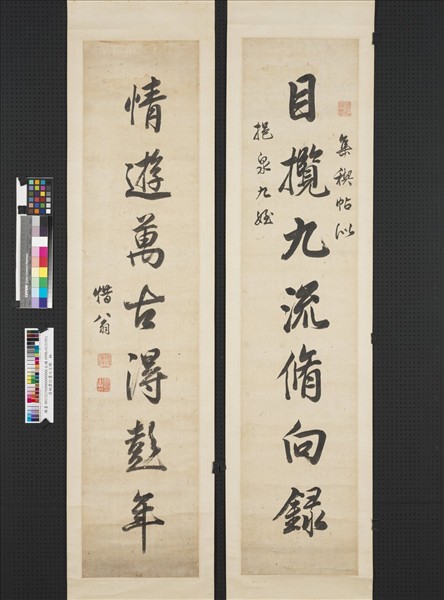 集禊帖似
目攬九流脩向録
挹泉九姪
情遊萬古得彭年
惜翁